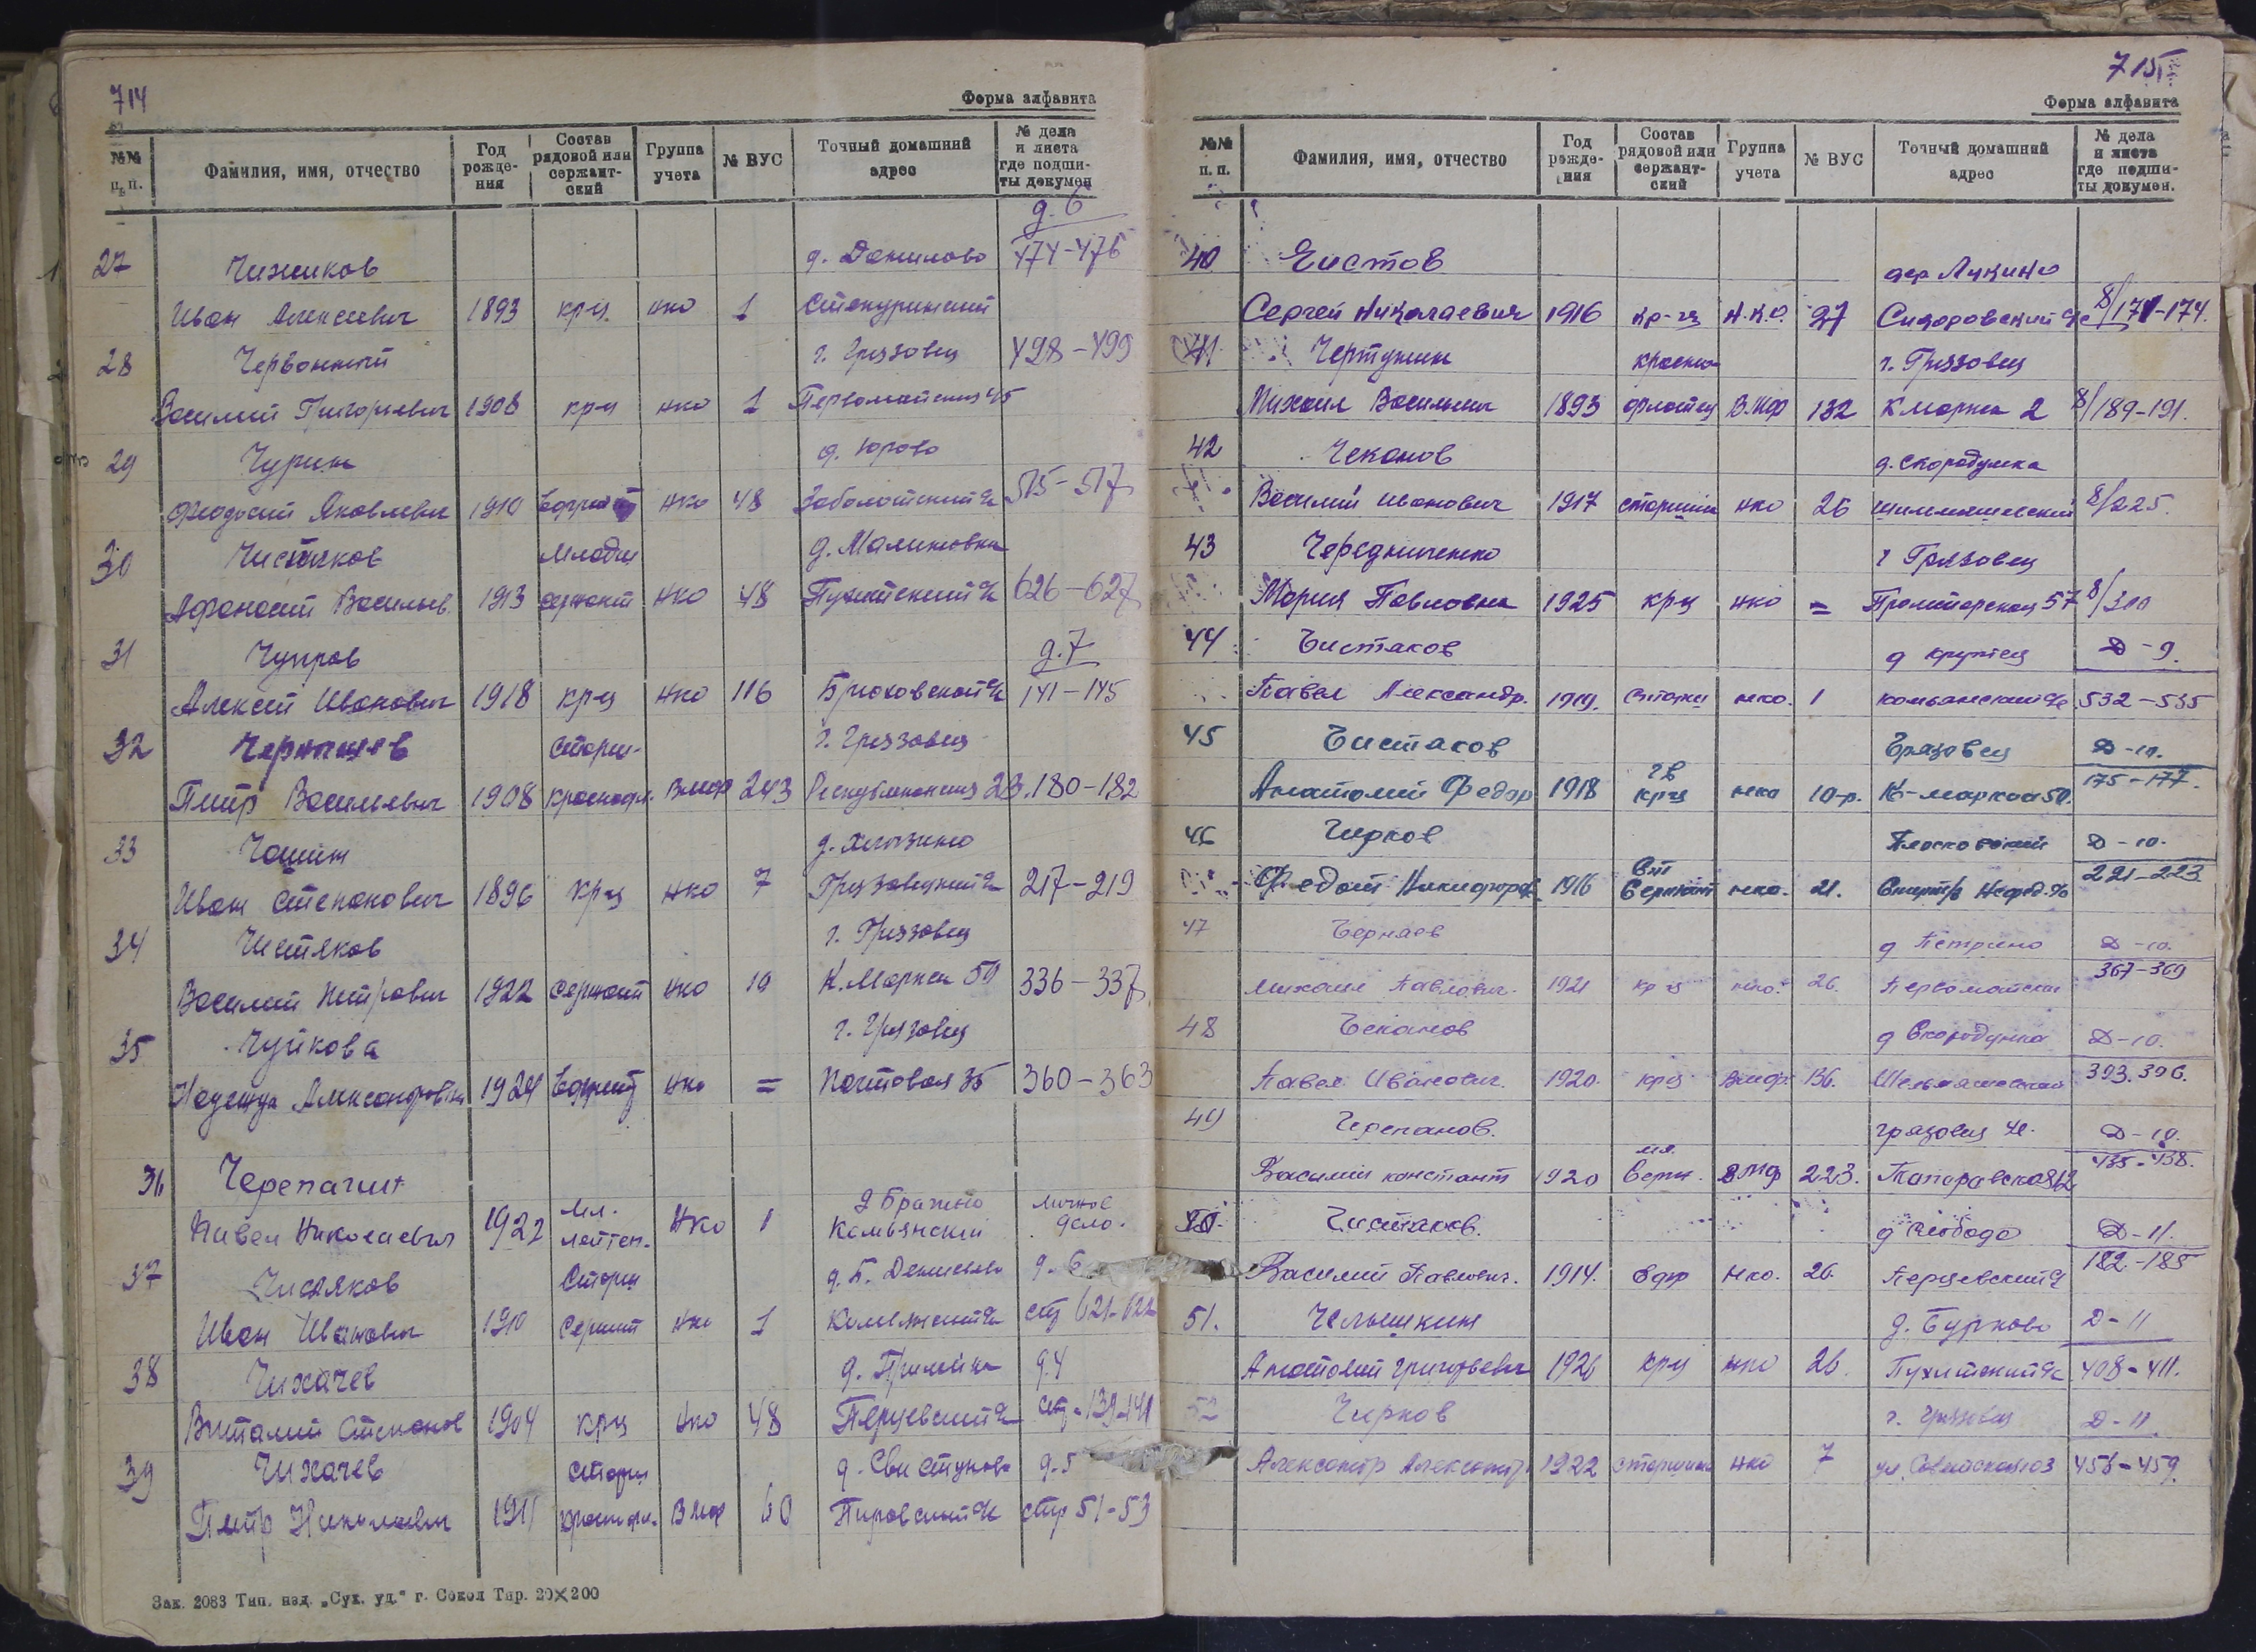 714
Форма алфавита
№№ п. п.
Фамилия, имя, отчество
Год рожде-ния
Состав рядовой или сержант-ский
Группа учета
№ ВУС
Точный домашний адрес
№ дела и листа где подши-ты докумен
д. 6
27 Чижиков д. Данилово 474-476
Иван Алексеевич 1893 кр-ц нко 1
28 Червонный г. Грязовец 498-499
Василий Григорьевич 1908 кр-ц нко 1 Первомайская 45
29 Чурин д. Юрово
Феодосий Яковлевич 1910 нко 48 Заболотский 515-517
30 Чистяков Младш д. Малиновка
Афанасий Васильев. 1913 сержант нко 48 626-627
31 Чупров д. 7
Алексей Иванович 1918 кр-ц нко 116 141-145
32 Чернышев старш. г. Грязовец
Петр Васильевич 1908 краснофл. вмф 243 23. 180-182
33 Чашин
Иван Степанович 1896 кр-ц нко 7 217-219
34 Чистяков г. Грязовец
Василий Петрович 1922 сержант нко 10 К. Маркса 50 336-337
35 Чуйкова г. Грязовец
Надежда Александровна 1924 нко = Почтовая 35 360-363
36 Черепагин
Павел Николаевич 1922 мл. лейтен. нко 1 д Бражино Комьянский личное дело.
37 Чистяков Старш д. 6
Иван Иванович 1910 нко 1 стр 621-622
38 Чихачев д. 4
Виталий Степанов 1904 кр-ц нко 48 Перцевский стр. 139-141
39 Чихачев старш д. Свистуново д. 5
Петр Николаевич 1911 краснофл. Вмф 60 стр 51-53
Зак. 2083 Тип. изд. „Сух. уд." г. Сокол Тир. 20×200
715
Форма алфавита
№№ п. п.
Фамилия, имя, отчество
Год рожде-ния
Состав рядовой или сержант-ский
Группа учета
№ ВУС
Точный домашний адрес
№ дела и листа где подши-ты докумен.
40 Чистов дер Лукино
Сергей Николаевич 1916 кр-ец Н.К.О. 27 Сидоровский 8/171-174.
41 красно- г. Грязовец
Михаил Васильевич 1893 флотец В.мф 132 К маркса 2 8/189-191.
42 Чеканов д. Скородумка
Василий Иванович 1917 старшина нко 26 8/225.
43 Чередниченко г Грязовец
Мария Павловна 1925 кр-ц нко = Пролетарская 57 8/300
44 Чистяков д Крутец Д-9.
Павел Александр. 1919. нко. 1 Комьянский 532-535
45 Чистяков Грязовец Д-10.
Анатолий Федор 1918 гв кр-ц нко 10-р. К-маркса 50. 175-177.
46 Чирков Плосковский Д-10.
Федот Никифоров 1916 Сержант нко. 21. 221-223
47 д Петрино Д-10.
Михаил Павлович. 1921 кр ц нко. 26. Первомайский 367-369
48 Чеканов д Скородумка Д-10.
Павел Иванович. 1920. кр-ц вмф. 136. 393.396.
49 Черепанов. грязовец Д-10.
Василий констант 1920 мл. серж. вмф 223. 435-438.
50. Чистяков. д Слобода Д-11.
Василий Павлович. 1914. Ефр нко. 26. Перцевский 182-185
51. Челышкин д. Бурково Д-11
Анатолий Григорьевич 1926 кр-ц нко 26. Пухитский 408-411.
52 Чирков г. Грязовец Д-11.
Александр Александр. 1922 старшина нко 7 ул. Советская 103 456-459.